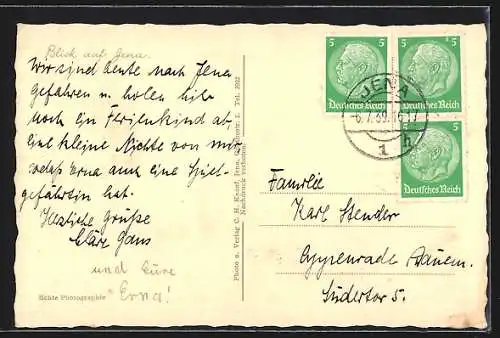 Blick auf Jena.
Wir sind heute nach Jena
gefahren u. holen hier
noch ein Ferienkind ab
eine kleine Nichte von mir
sodass Erna auch eine Spiel-
gefährtin hat.
Herzliche Grüße
Cläre Gans
und Eure
Erna!
Echte Photographie
Photo u. Verlag v. H. Knopf, Jena, Tel. 2982
Nachdruck verboten
5 5
5 5
Deutsches Reich
Deutsches Reich
5
Deutsches Reich
JENA
1 h
Familie
Karl Stender
Appenrade
Südertor 5.